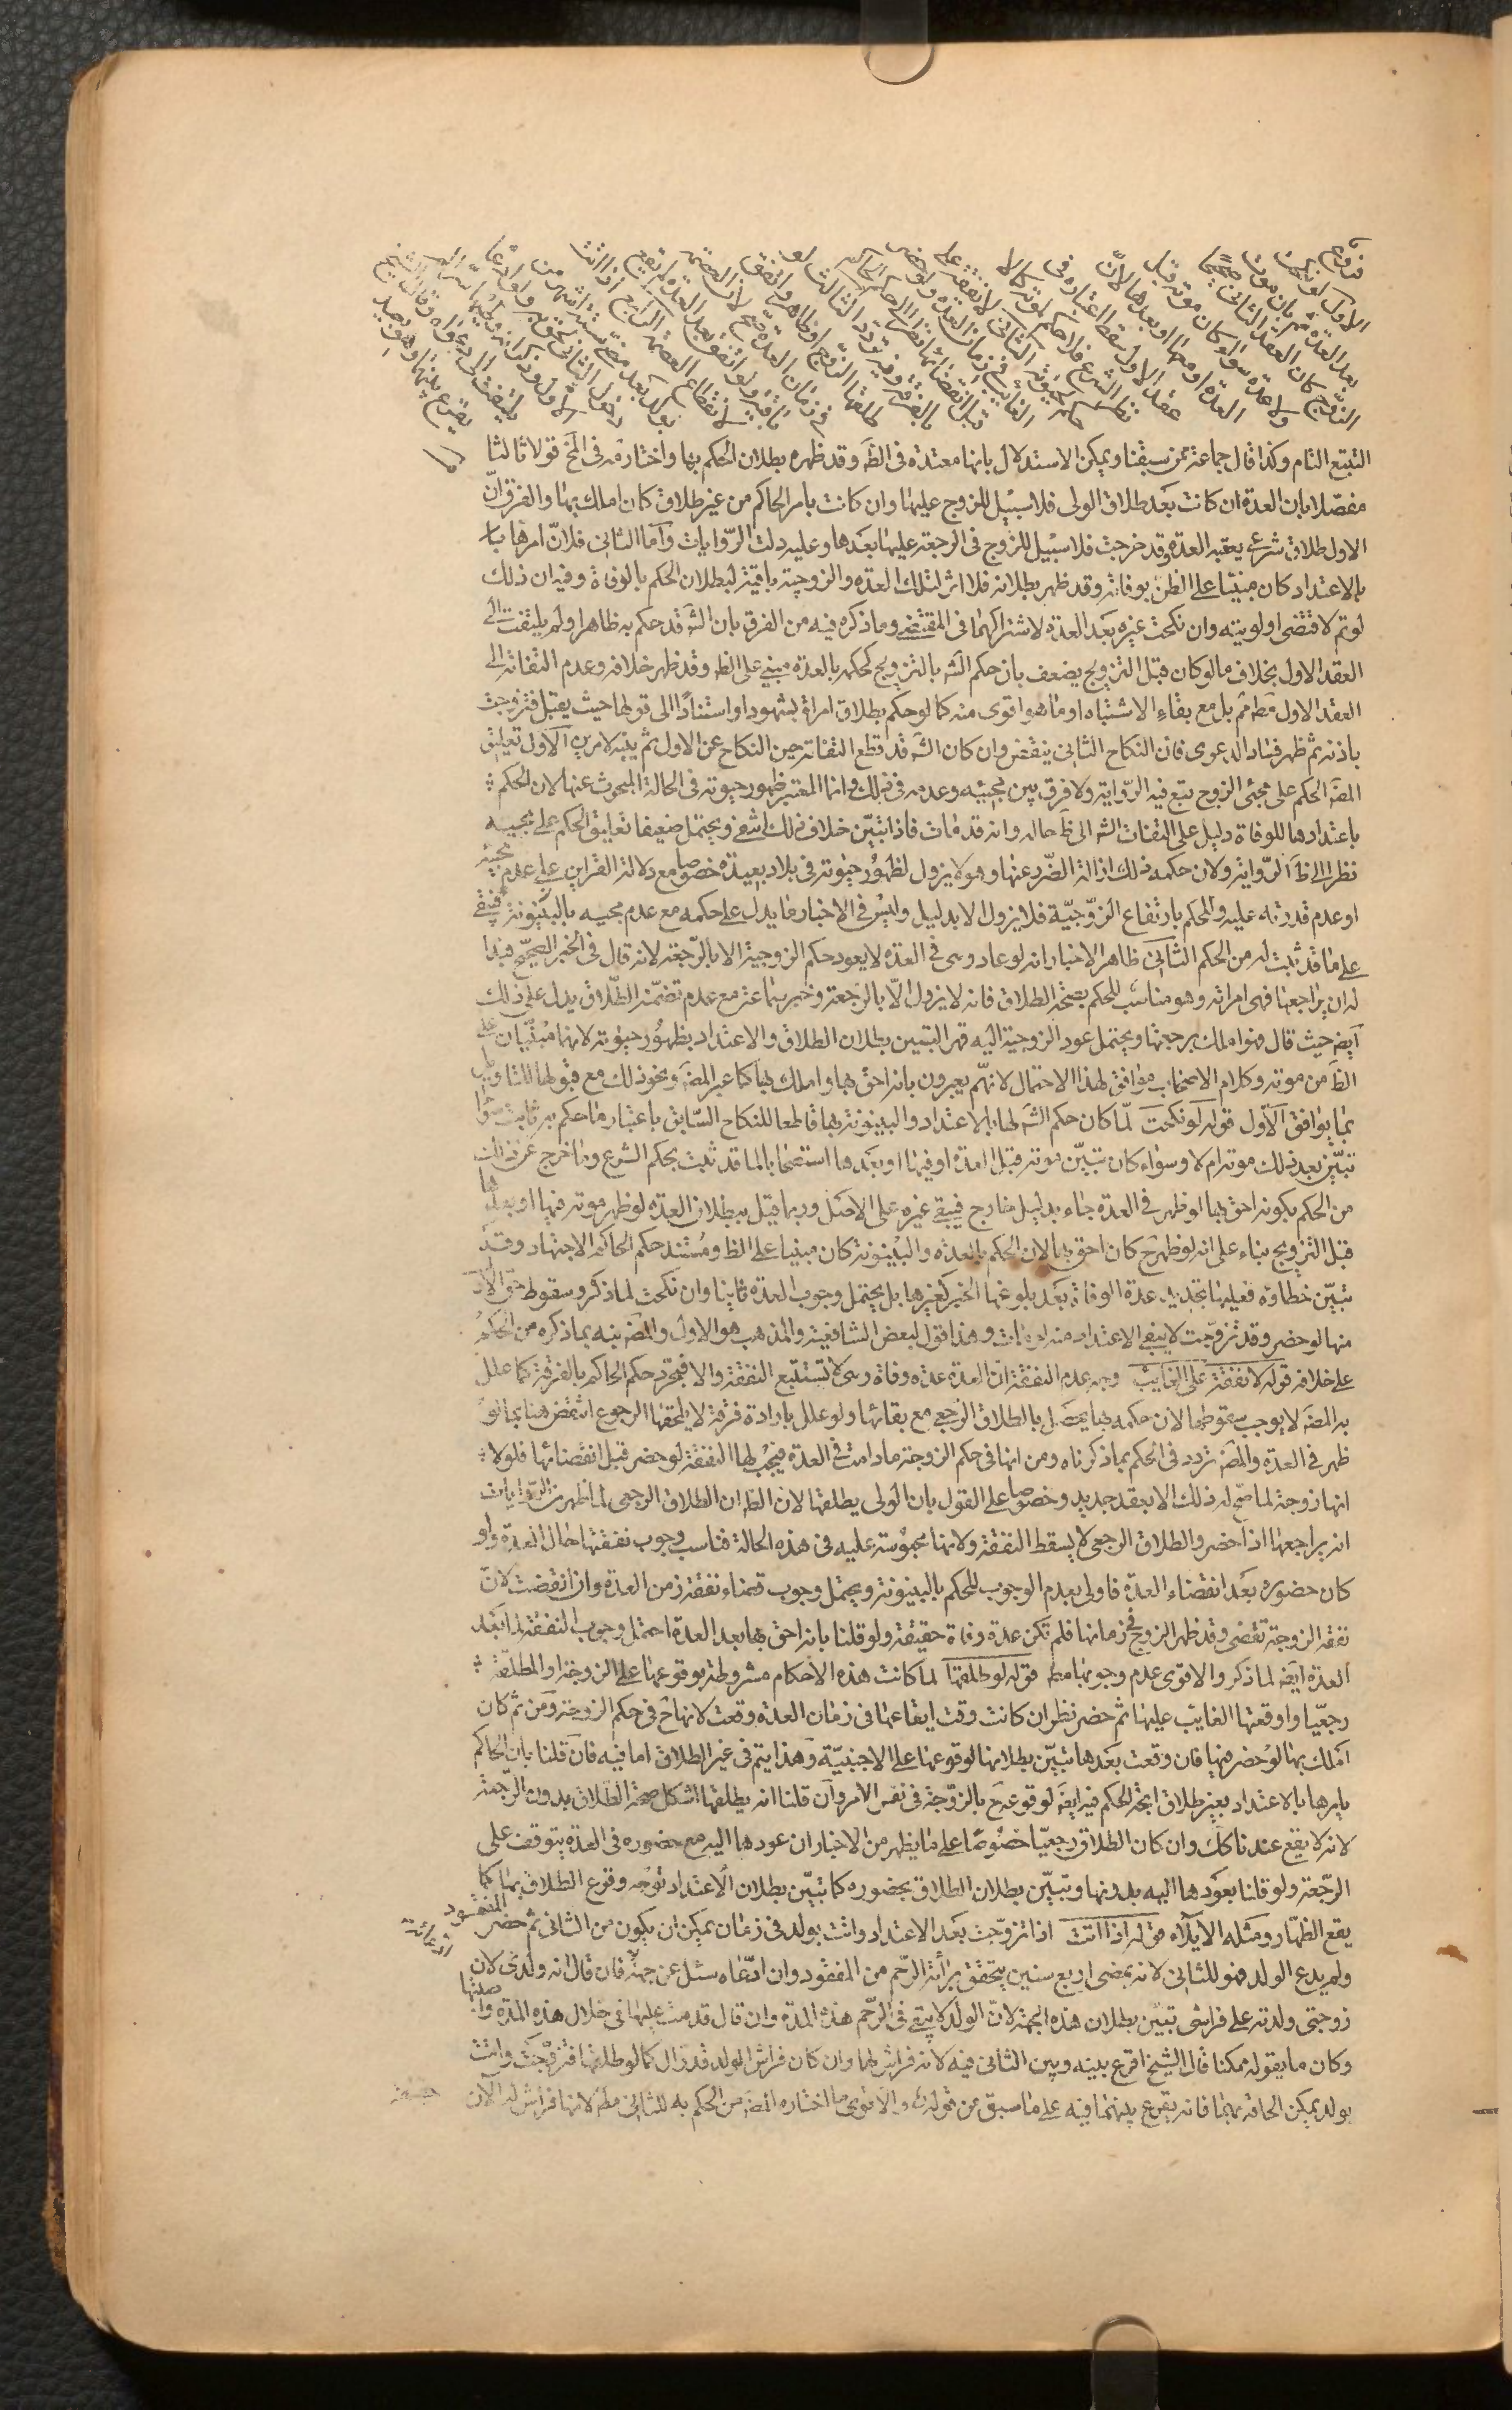 فروع
الاول لو نكحت
بعد العدة ثم بان موت
الزوج كان العقد الثاني صحيحا
ولا عدة سواء كان موته قبل
العدة او معها او بعدها لان
عقد الاول سقط اعتباره في
نظر الشرع فلا حكم لموته كما لا
حكم لحيوته الثاني لا نفقة على
الغائب في زمان العدة ولو حضر
قبل انقضائها نظرا الى حكم الحاكم
بالفرقة وفيه تردد الثالث لو
طلقها الزوج او ظاهر واتفق
في زمان العدة صح لان العصمة
باقية ولو اتفق بعد العدة لم يقع
لانقطاع العصمة الرابع اذا اتت
بولد بعد مضي ستة اشهر من
دخول الثاني لحق به ولو ادعاه
الاول وذكر انه وطئها سرا لم
يلتفت الى دعواه وقال الشيخ
يقرع بينهما وهو بعيد
التتبع التام وكذا قال جماعة ممن سبقنا ويمكن الاستدلال بانها معتدة في الظ وقد ظهر بطلان الحكم بها واختار فى المخ قولا ثالثا
مفصلا بان العدة ان كانت بعد طلاق الولى فلا سبيل للزوج عليها وان كانت بامر الحاكم من غير طلاق كان املك بها والفرق ان
الاول طلاق شرعي يعقبه العدة وقد خرجت فلا سبيل للزوج فى الرجعة عليها بعدها وعليه دلت الروايات واما الثانى فلان امرها
بالاعتداد كان مبنيا على الظن بوفاته وقد ظهر بطلانه فلا اثر لتلك العدة والزوجية باقية لبطلان الحكم بالوفاة وفيه ان ذلك
لو تم لاقتضى اولويته وان نكحت غيره بعد العدة لاشتراكهما فى المقتضى وما ذكره فيه من الفرق بان الش قد حكم به ظاهرا ولم يلتفت الى
العقد الاول بخلاف ما لو كان قبل التزويج يضعف بان حكم الش بالتزويج كحكمه بالعدة مبنى على الظ وقد ظهر خلافه وعدم التفاته الى
العقد الاول مطم ثم بل مع بقاء الاشتباه او ما هو اقوى منه كما لو حكم بطلاق امراة بشهود او استنادا الى قولها حيث يقبل فتزوجت
باذنه ثم ظهر فساد الدعوى فان النكاح الثانى ينقض وان كان الش قد قطع التفاته حين النكاح عن الاول ثم ينبه لامرين الاول تعليق
المص الحكم على مجئ الزوج تبع فيه الرواية ولا فرق بين مجيئه وعدمه فى ذلك وانما المعتبر ظهور حيوته فى الحالة المبحوث عنها لان الحكم
باعتدادها للوفاة دليل على التفات الش الى ظ حاله وانه قد مات فاذا تبين خلاف ذلك انتفى ويحتمل ضعيفا تعليق الحكم على مجيئه
نظرا الى ظ الرواية ولان حكمه ذلك ازالة الضرر عنها وهو لا يزول لظهور حيوته فى بلاد بعيدة خصوصا مع دلالة القراين على عدم مجيئه
او عدم قدرته عليه والحكم بارتفاع الزوجية فلا يزول الا بدليل وليس فى الاخبار ما يدل على حكمه مع عدم مجيئه بالبينونة فيبقى
على ما قد ثبت له من الحكم الثانى ظاهر الاخبار انه لو عاد وهى فى العدة لا يعود حكم الزوجية الا بالرجعة لانه قال فى الخبر الصحيح فبدا
له ان يراجعها فهى امراته وهو مناسب للحكم بصحة الطلاق فانه لا يزول الا بالرجعة وخبر سماعة مع عدم تضمنه الطلاق يدل على ذلك
ايضا حيث قال فهو املك برجعتها ويحتمل عود الزوجية اليه قهرا لتبين بطلان الطلاق والاعتداد بظهور حيوته لانهما مبنيان على
الظ من موته وكلام الاصحاب موافق لهذا الاحتمال لانهم يعبرون بانه احق بها واملك بها كما عبر المص ونحو ذلك مع قبولها للتاويل
بما يوافق الاول قوله لو نكحت لما كان حكم الش لها بالاعتداد والبينونة بها قاطعا للنكاح السابق باعتبار ما حكم به ثابت سواء
تبين بعد ذلك موته ام لا وسواء كان تبين موته قبل العدة او فيها او بعدها استصحابا لما قد ثبت بحكم الشرع وما خرج عن ذلك
من الحكم بكونه احق بها لو ظهر فى العدة جاء بدليل خارج فيبقى غيره على الاصل وربما قيل ببطلان العدة لو ظهر موته فيها او بعدها
قبل التزويج بناء على انه لو ظهر ح كان احق بها لان الحكم بالعدة والبينونة كان مبنيا على الظ ومستند حكم الحاكم الاجتهاد وقد
تبين خطاؤه فعليها تجديد عدة الوفاة بعد بلوغها الخبر كغيرها بل يحتمل وجوب العدة ثانيا وان نكحت لما ذكر وسقوط حق الاول
منها لو حضر وقد تزوجت لا ينفى الاعتداد منه لو مات وهذا قول لبعض الشافعية والمذهب هو الاول والمص نبه بما ذكره من الحكم
على خلافه قوله لا نفقة على الغايب وجه عدم النفقة ان العدة عدة وفاة وهى لا تستتبع النفقة والا فمجرد حكم الحاكم بالفرقة كما علل
به المص لا يوجب سقوطها لان حكمه بها يحصل بالطلاق الرجعى مع بقائها ولو علل بارادة فرقة لا يلحقها الرجوع انتقض هنا بما لو
ظهر فى العدة والمص تردد فى الحكم بما ذكرناه ومن انها فى حكم الزوجة ما دامت فى العدة فيجب لها النفقة لو حضر قبل انقضائها فلولا
انها زوجة لما صح له ذلك الا بعقد جديد وخصوصا على القول بان الولى يطلقها لان الظ ان الطلاق الرجعى لما ظهر من الروايات
انه يراجعها اذا حضر والطلاق الرجعى لا يسقط النفقة ولانها محبوسة عليه فى هذه الحالة فناسب وجوب نفقتها حال العدة ولو
كان حضوره بعد انقضاء العدة فاولى بعدم الوجوب للحكم بالبينونة ويحتمل وجوب قضاء نفقة زمن العدة وان انقضت لان
نفقة الزوجة تقضى وقد ظهر الزوج فى زمانها فلم تكن عدة وفاة حقيقة ولو قلنا بانه احق بها بعد العدة احتمل وجوب النفقة لما بعد
العدة ايضا لما ذكر والاقوى عدم وجوبها مطم قوله لو طلقها لما كانت هذه الاحكام مشروطة بوقوعها على الزوجة او المطلقة
رجعيا واوقعتها الغايب عليها ثم حضر نظر ان كانت وقت ايقاعها فى زمان العدة وقعت لانها ح فى حكم الزوجة ومن ثم كان
املك بها لو حضر فيها فان وقعت بعدها تبين بطلانها لوقوعها على الاجنبية وهذا يتم فى غير الطلاق اما فيه فان قلنا بان الحاكم
يامرها بالاعتداد بغير طلاق اتجه الحكم فيه ايضا لوقوعه ح بالزوجة فى نفس الامر وان قلنا انه يطلقها اشكل صحة الطلاق بدون الرجعة
لانه لا يقع عندنا كك وان كان الطلاق رجعيا خصوصا على ما يظهر من الاخبار ان عودها اليه مع حضوره فى العدة يتوقف على
الرجعة ولو قلنا بعودها اليه بدونها وتبين بطلان الطلاق بحضوره كما تبين بطلان الاعتداد توجه وقوع الطلاق بها كما
يقع الظهار ومثله الايلاء قوله اذا اتت اذا تزوجت بعد الاعتداد واتت بولد فى زمان يمكن ان يكون من الثانى ثم حضر المفقود
ولم يدع الولد فهو للثانى لانه بمضى اربع سنين يتحقق براءة الرحم من المفقود وان ادعاه سئل عن جهته فان قال انه ولدى لان
زوجتى ولدته على فراشى تبين بطلان هذه الجهة لان الولد لا يبقى فى الرحم هذه المدة وان قال قدمت عليها فى خلال هذه المدة واصبتها
وكان ما يقوله ممكنا قال الشيخ اقرع بينه وبين الثانى فيه لانه فراش لها وان كان فراش الولد قد زال كما لو طلقها فتزوجت واتت
بولد يمكن الحاقه بهما فانه يقرع بينهما فيه على ما سبق من قوله والاقوى ما اختاره المص من الحكم به للثانى مطم لانها فراش له الان